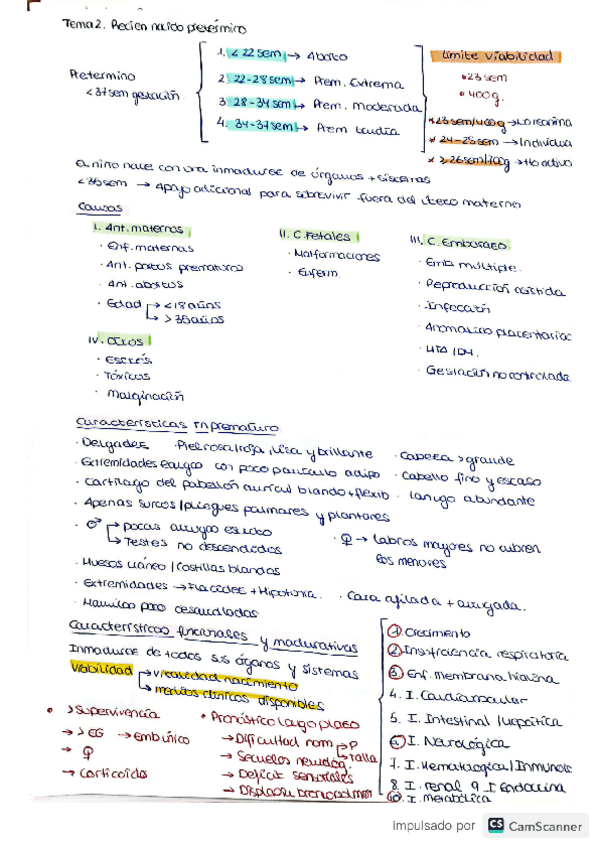 Tema 2. Recien nacido pretermino
Pretermino
< 37 sem gestación
1. < 22 sem → Aborto
2. 22-28 sem → Prem. Extrema
3. 28-34 sem → Prem. Moderada
4. 34-37 sem → Prem tardia
Limite viabilidad
23 sem
400 g.
* 23 sem/400g → Lo reanima
* 24-25 sem → Individua
* ≥ 26 sem/700g → Ho activo
El niño nace con una inmadurez de órganos + sísceras
< 35 sem → Apoyo adicional para sobrevivir fuera del útero materno
Causas
I. Ant. maternos
· Enf. maternas
· Ant. partos prematuros
· Ant. abortos
· Edad → < 18 años
→ > 35 años
II. C. Fetales
· Malformaciones
· Enferm.
III. C. Embarazo
· Emb múltiple.
· Reproducción asistida
· Infección
· Anomalias placentarias
· HTA / DM.
· Gestación no controlada
IV. Otros
· Estrés
· Tóxicos
· Marginación
Características rn prematuro
· Delgadez · Piel rosa/roja, lisa y brillante · Cabeza > grande
· Extremidades largas con poco paniculo adipo · Cabello fino y escaso
· Cartilago del pabellón auricul blando + flexib · lanugo abundante
· Apenas surcos / pliegues palmares y plantares
· ♂ → pocas arrugas escroto
→ Testes no descendidos
· ♀ → labios mayores no cubren
los menores
· Huesos cráneo / Costillas blandas
· Extremidades → Flacidez + Hipotonia. · Cara afilada + arrugada.
· Mamilas poco desarrolladas
Características funcionales y madurativas
Inmadurez de todos sus órganos y sistemas
Viabilidad → vitalidad nacimiento
→ medios clínicos disponibles
· > Supervivencia
→ > EG → Embrionico
→ ♀
→ Corticoide
· Pronóstico largo plazo
→ Dificultad nom → P
→ Talla
→ Secuelas neurolog.
→ Deficit sensoriales
→ Displasia broncopulmonar
1. Crecimiento
2. Insuficiencia respiratoria
3. Enf. membrana hialina
4. I. Cardiovascular
5. I. Intestinal / hepática
6. I. Neurológica
7. I. Hematologica / Inmunolo
8. I. renal 9. I Endocrina
10. I. metabólica
Impulsado por CS CamScanner